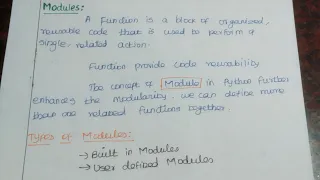 Modules:
A Function is a block of organized,
reusable code that is used to perform a
single, related action.
Function provide code reusability
The concept of Module in Python further
enhances the modularity. we can define more
than one related functions together.
Types of Modules:
→ Built in Modules
→ User defined Modules